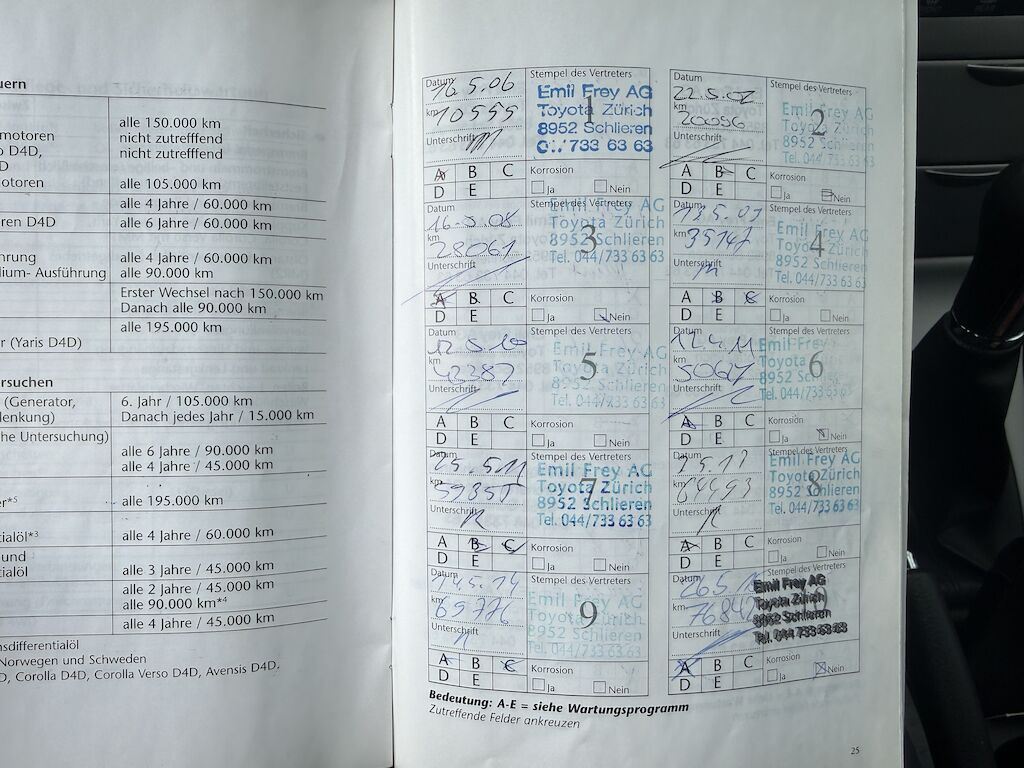 uern
alle 150.000 km
motoren
nicht zutrefffend
o D4D,
nicht zutrefffend
D
notoren
alle 105.000 km
alle 4 Jahre / 60.000 km
ren D4D
alle 6 Jahre / 60.000 km
hrung
alle 4 Jahre / 60.000 km
lium- Ausführung
alle 90.000 km
Erster Wechsel nach 150.000 km
Danach alle 90.000 km
alle 195.000 km
r (Yaris D4D)
ersuchen
(Generator,
6. Jahr / 105.000 km
lenkung)
Danach jedes Jahr / 15.000 km
he Untersuchung)
alle 6 Jahre / 90.000 km
alle 4 Jahre / 45.000 km
er*5
alle 195.000 km
tialöl*3
alle 4 Jahre / 60.000 km
und
tialöl
alle 3 Jahre / 45.000 km
alle 2 Jahre / 45.000 km
alle 90.000 km*4
alle 4 Jahre / 45.000 km
nsdifferentialöl
Norwegen und Schweden
D, Corolla D4D, Corolla Verso D4D, Avensis D4D.
Datum 16.5.06
Stempel des Vertreters
km 10555
Unterschrift
1
Emil Frey AG
Toyota Zürich
8952 Schlieren
733 63 63
A B C
D E
Korrosion
Ja Nein
Datum 22.5.07
Stempel des Vertreters
km 20056
Unterschrift
2
Emil Frey AG
Toyota Zürich
8952 Schlieren
Tel. 044/733 63 63
A B C
D E
Korrosion
Ja Nein
Datum 16.5.08
Stempel des Vertreters
km 28061
Unterschrift
3
Emil Frey AG
Toyota Zürich
8952 Schlieren
Tel. 044/733 63 63
A B C
D E
Korrosion
Ja Nein
Datum
Stempel des Vertreters
km 35147
Unterschrift
4
Emil Frey AG
Toyota Zürich
8952 Schlieren
Tel. 044/733 63 63
A B C
D E
Korrosion
Ja Nein
Datum 12.5.10
Stempel des Vertreters
km 42387
Unterschrift
5
Emil Frey AG
Toyota Zürich
8952 Schlieren
Tel. 044/733 63 63
A B C
D E
Korrosion
Ja Nein
Datum 12.4.11
Stempel des Vertreters
km
Unterschrift
6
Emil Frey
Toyota Zürich
8952 Schlieren
Tel. 044/733 63 63
A B C
D E
Korrosion
Ja Nein
Datum
Stempel des Vertreters
km
Unterschrift
7
Emil Frey AG
Toyota Zürich
8952 Schlieren
Tel. 044/733 63 63
A B C
D E
Korrosion
Ja Nein
Datum
Stempel des Vertreters
km 64493
Unterschrift
8
Emil Frey AG
Toyota Zürich
8952 Schlieren
Tel. 044/733 63 63
A B C
D E
Korrosion
Ja Nein
Datum
Stempel des Vertreters
km 69776
Unterschrift
9
Emil Frey AG
Toyota Zürich
8952 Schlieren
Tel. 044/733 63 63
A B C
D E
Korrosion
Ja Nein
Datum
Stempel des Vertreters
km 76842
Unterschrift
Emil Frey AG
Toyota Zürich
8952 Schlieren
Tel. 044 733 63 63
A B C
D E
Korrosion
Ja Nein
Bedeutung: A-E = siehe Wartungsprogramm
Zutreffende Felder ankreuzen
25